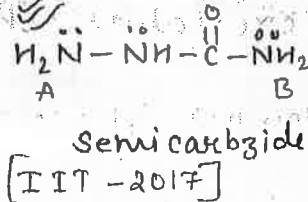 O
H₂N̈ – N̈H – C – N̈H₂
A B
Semicarbzide
[IIT - 2017]